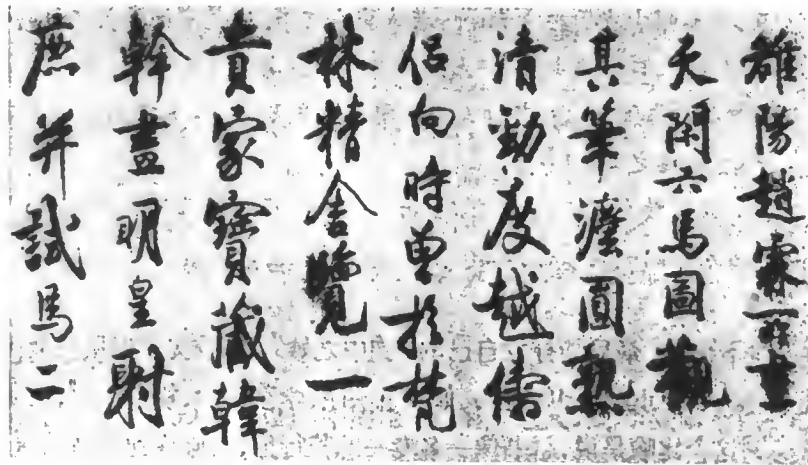 雒陽趙霖所畫
天閑六馬圖觀
其筆灋圓熟
清勁度越儕
侶向時曾於梵
林精舍覽一
貴家寶藏韓
幹畫明皇射
鹿并試馬二